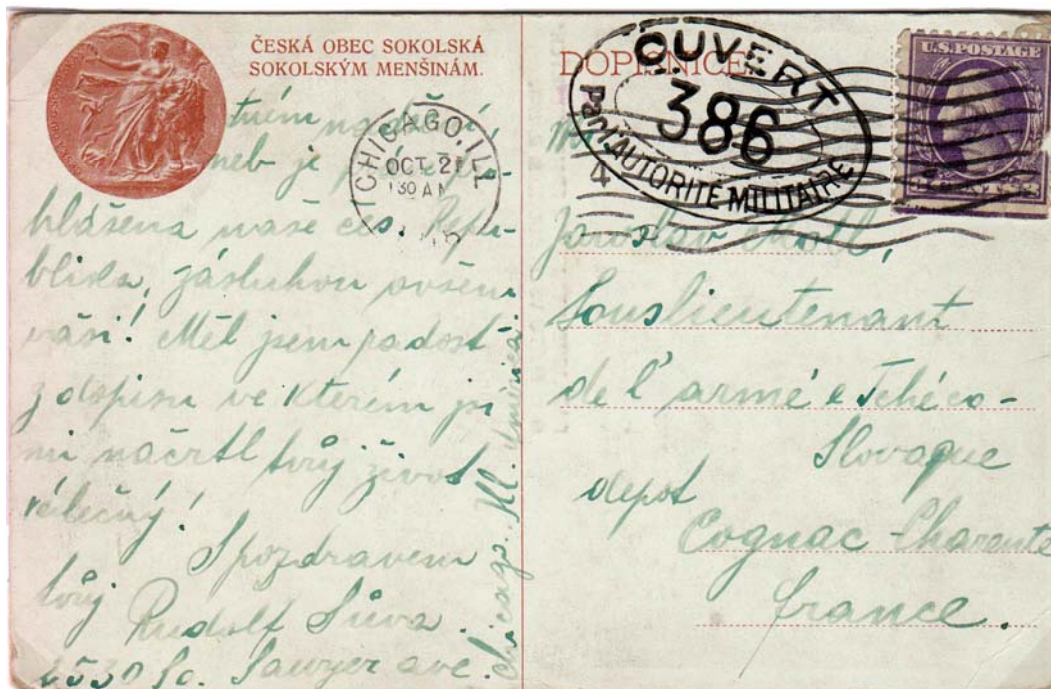 ČESKÁ OBEC SOKOLSKÁ
SOKOLSKÝM MENŠINÁM.
nadšení,
neb je
hlášena naše čes. Repu-
blika, zásluhou ovšem
vaší! Měl jsem radost
z dopisu ve kterém jsi
mi načrtl tvůj život
válečný!
S pozdravem
tvůj Rudolf Sůva.
2530 So. Sawyer ave. Chicago. Ill. America
CHICAGO, ILL
OCT 21
130 AM
DOPISNICE
OUVERT
386
Par l'AUTORITÉ MILITAIRE
4
U.S. POSTAGE
Jaroslav
Souslieutenant
de l'armée Tchéco-
Slovaque
depot
Cognac-Charente
france.